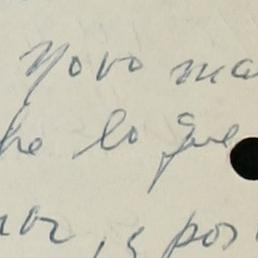 Novo ma
he lo que
nor, s pos